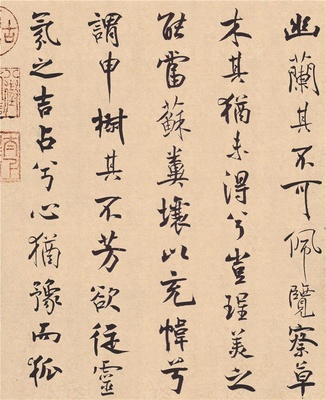 幽蘭其不可佩覽察草
木其猶未得兮豈珵美之
能當蘇糞壤以充幃兮
謂申椒其不芳欲從靈
氛之吉占兮心猶豫而狐